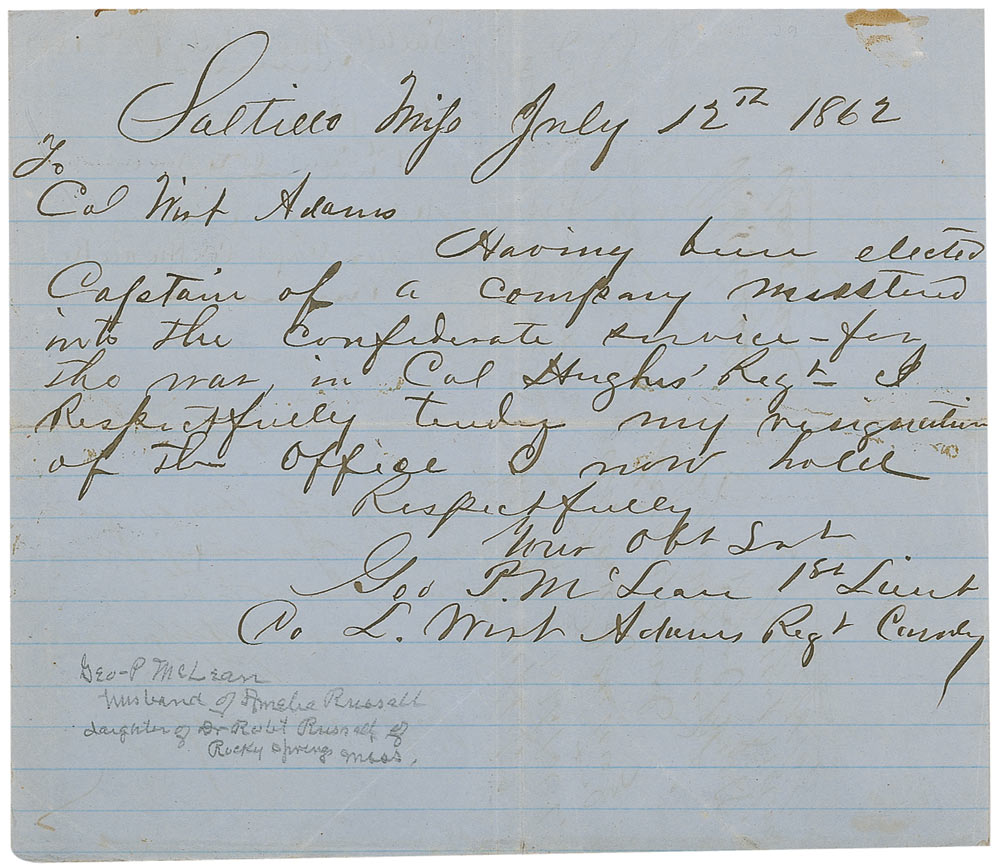 Saltillo Miss July 12th 1862
To
Col Wirt Adams
Having been elected
Captain of a company mustered
into the Confederate service - for
the war, in Col Hughs' Regt I
Respectfully tender my resignation
of the office I now hold
Respectfully
Your Obt Svt
Geo P. McLean 1st Lieut
Co L. Wirt Adams Regt Cavalry
Geo-P McLean
husband of Amelia Russell
daughter of Dr Robt Russell of
Rocky Springs Miss.